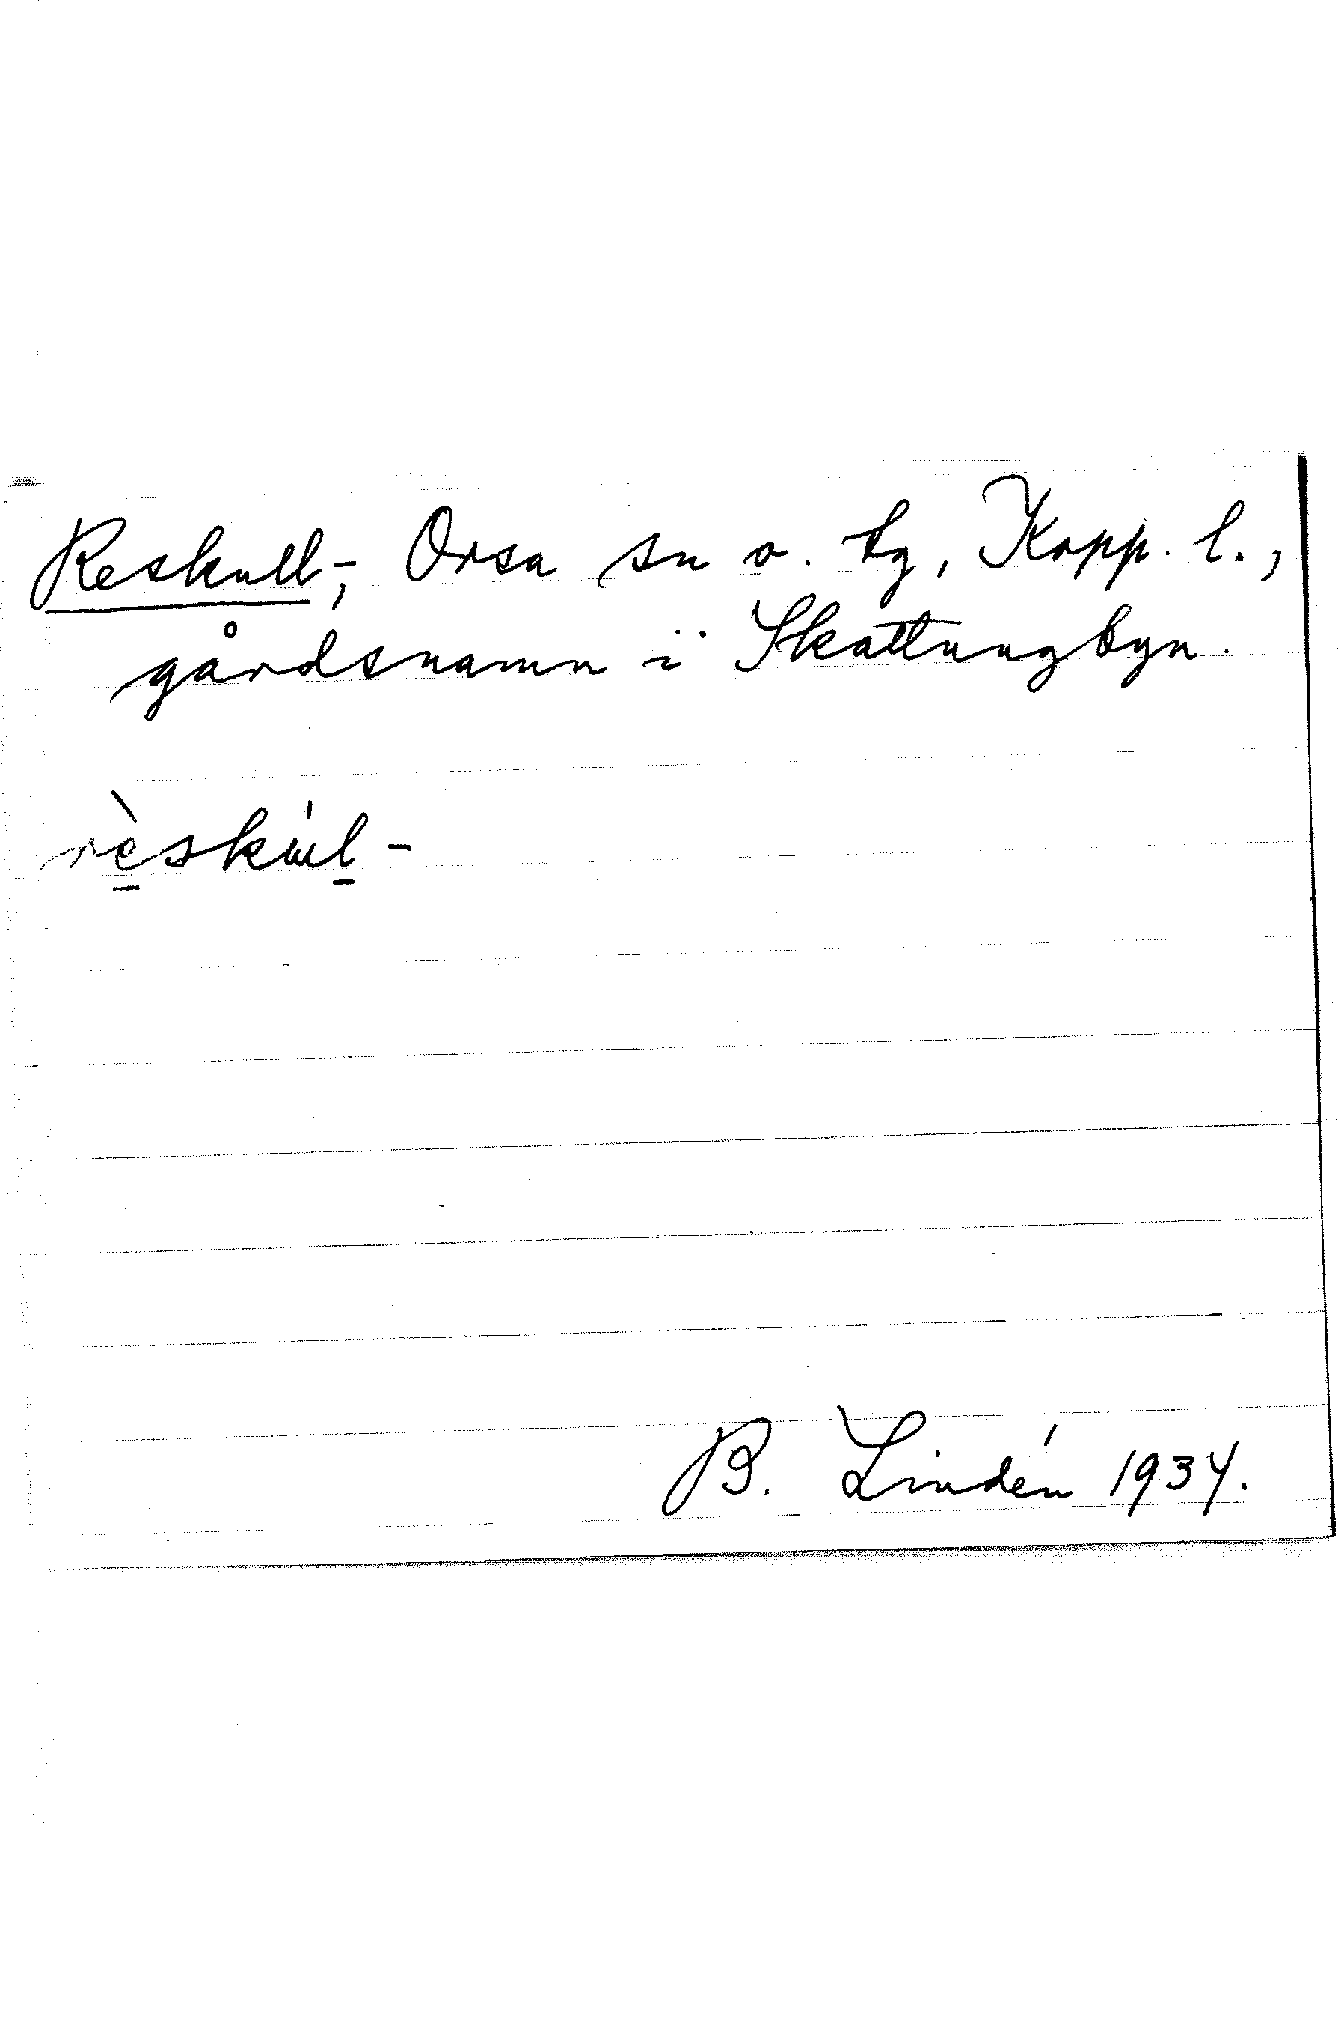 Reskull-, Orsa sn o. tg, Kopp. l.,
gårdsnamn i Skattungbyn.
rèskúl-
B. Lindén 1934.